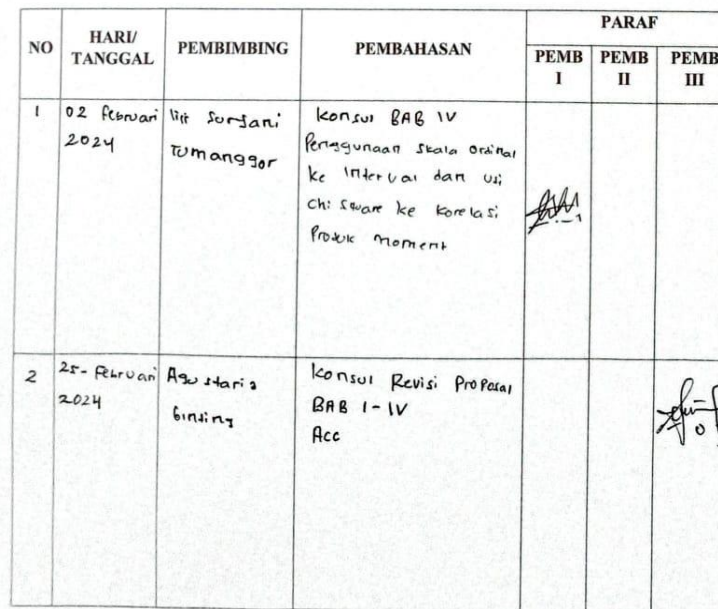 NO HARI/ TANGGAL PEMBIMBING PEMBAHASAN PARAF
PEMB I PEMB II PEMB III
1 02 Februari 2024
Surjani
Tumanggor
Konsul BAB IV
Penggunaan skala ordinal
ke interval dan uji
chi square ke korelasi
Produk moment
2 25 - Februari 2024
Agustaria
Ginting
Konsul Revisi Proposal
BAB I - IV
Acc